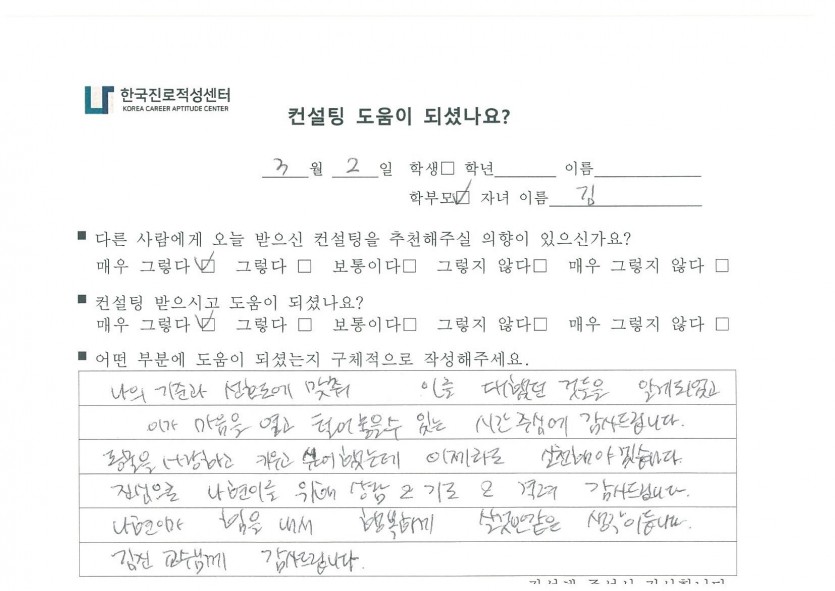 한국진로적성센터
KOREA CAREER APTITUDE CENTER
컨설팅 도움이 되셨나요?
3 월 2 일 학생□ 학년 이름
학부모☑ 자녀 이름 김
■ 다른 사람에게 오늘 받으신 컨설팅을 추천해주실 의향이 있으신가요?
매우 그렇다 ☑ 그렇다 □ 보통이다□ 그렇지 않다□ 매우 그렇지 않다 □
■ 컨설팅 받으시고 도움이 되셨나요?
매우 그렇다 ☑ 그렇다 □ 보통이다□ 그렇지 않다□ 매우 그렇지 않다 □
■ 어떤 부분에 도움이 되셨는지 구체적으로 작성해주세요.
나의 기준과 선호도에 맞춰 이를 대했던 것들을 알게되었고
이가 마음을 열고 털어놓을수 있는 시간주심에 감사드립니다.
키우고 싶어했는데 이제라도 실천해야 겠습니다.
진심으로 나현이를 위해 상담 기도 격려 감사드립니다.
나현이가 힘을 내서 행복하게 살것만같은 생각이듭니다.
김진 교수님께 감사드립니다.